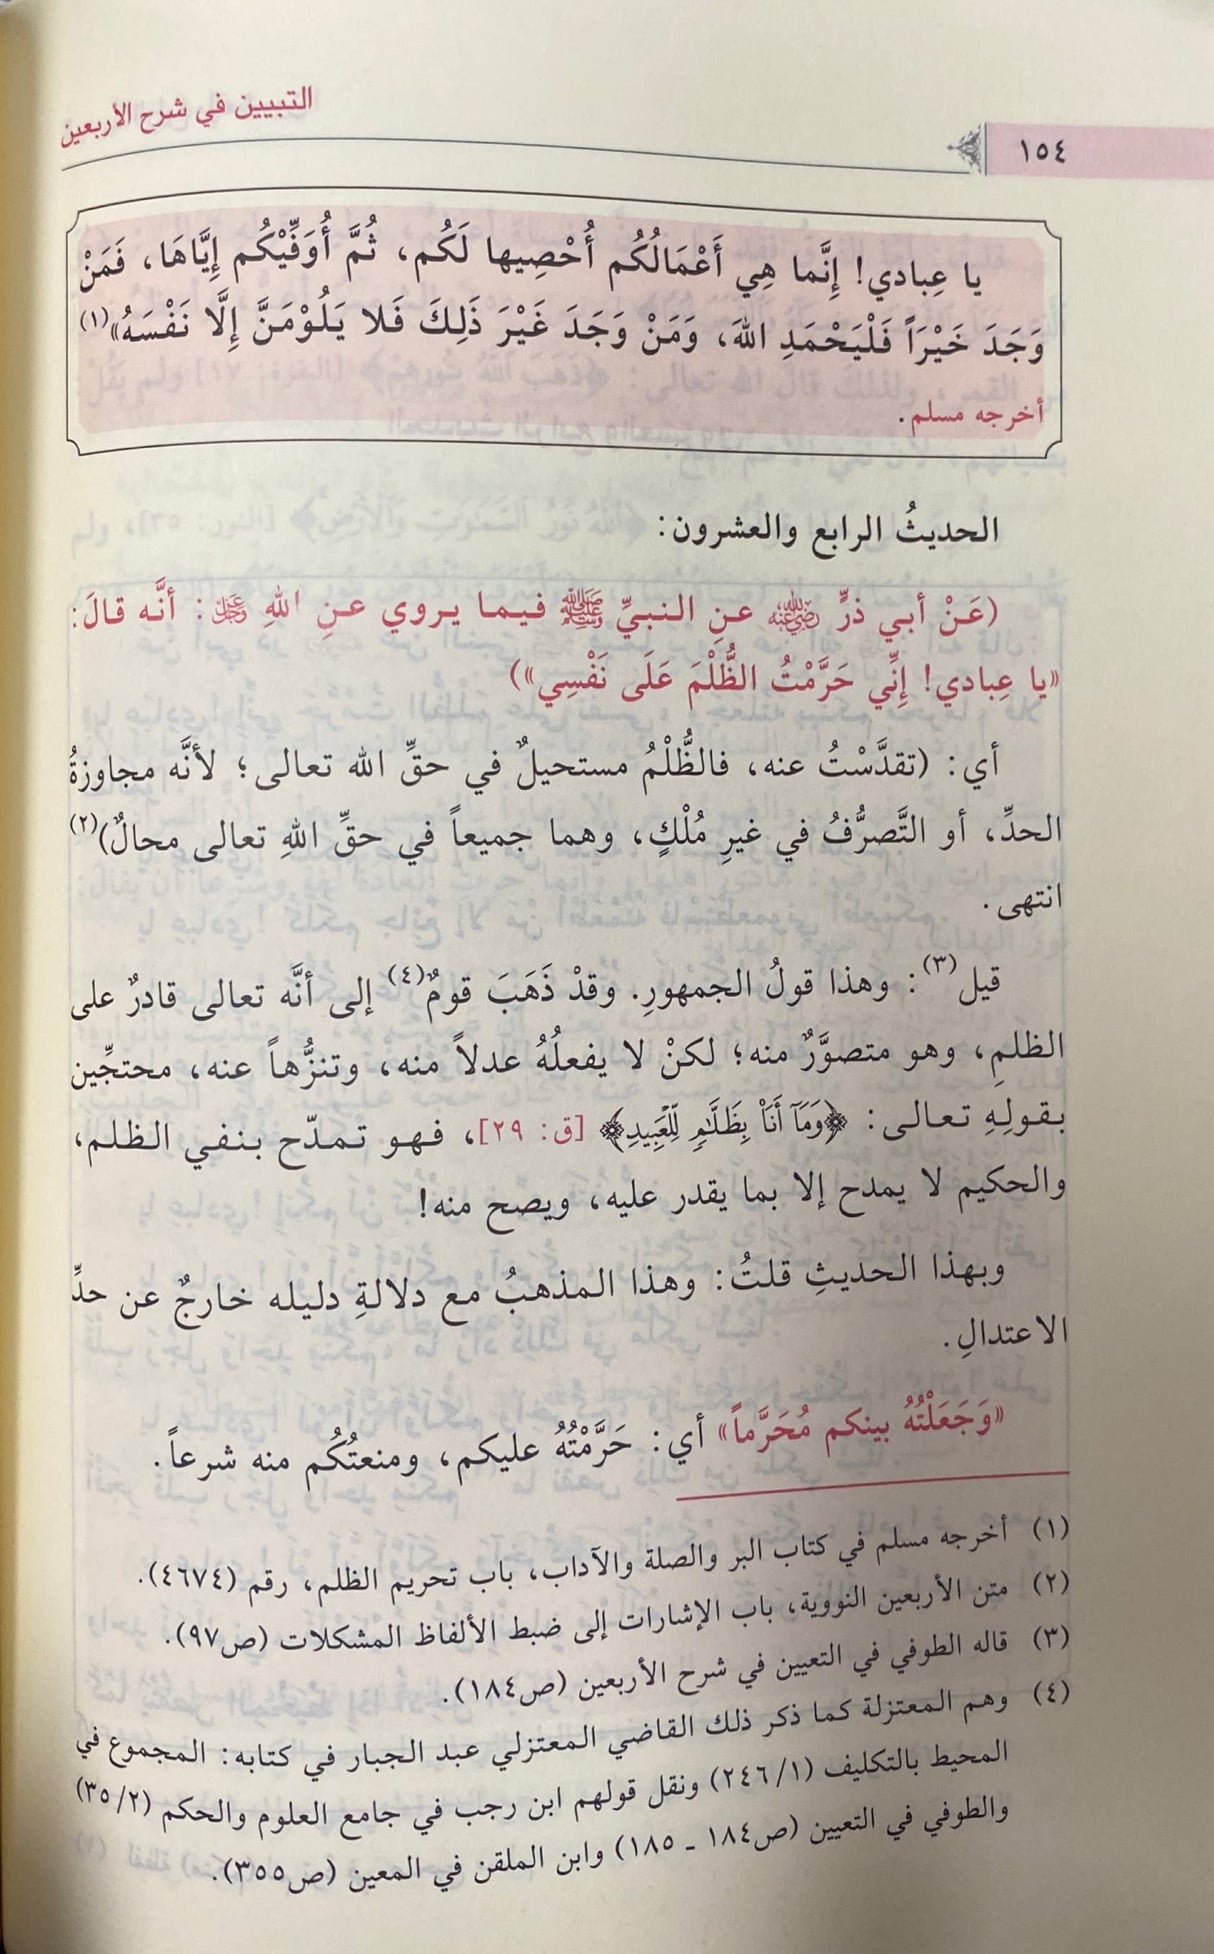 التبيين في شرح الأربعين
١٥٤
يا عِبادي! إِنَّما هِي أَعْمَالُكُم أُحْصِيها لَكُم، ثُمَّ أُوَفِّيْكُم إِيَّاهَا، فَمَنْ
وَجَدَ خَيْرَاً فَلْيَحْمَدِ اللهَ، وَمَنْ وَجَدَ غَيْرَ ذَلِكَ فَلا يَلُوْمَنَّ إِلَّا نَفْسَهُ»(١)
أخرجه مسلم.
الحديثُ الرابع والعشرون:
(عَنْ أبي ذرٍّ رضي الله عنه عنِ النبيِّ ﷺ فيما يروي عنِ اللهِ عز وجل: أنَّه قالَ:
«يا عِبادي! إِنِّي حَرَّمْتُ الظُّلْمَ عَلَى نَفْسِي»)
أي: (تقدَّسْتُ عنه، فالظُّلْمُ مستحيلٌ في حقِّ الله تعالى؛ لأنَّه مجاوزةُ
الحدِّ، أو التَّصرُّفُ في غيرِ مُلْكٍ، وهما جميعاً في حقِّ اللهِ تعالى محالٌ)(٢)
انتهى.
قيل(٣): وهذا قولُ الجمهورِ. وقدْ ذَهَبَ قومٌ(٤) إلى أنَّه تعالى قادرٌ على
الظلمِ، وهو متصوَّرٌ منه؛ لكنْ لا يفعلُهُ عدلاً منه، وتنزُّهاً عنه، محتجِّين
بقولِهِ تعالى: ﴿وَمَآ أَنَا۠ بِظَلَّٰمٍ لِّلْعَبِيدِ﴾ [ق: ٢٩]، فهو تمدّح بنفي الظلم،
والحكيم لا يمدح إلا بما يقدر عليه، ويصح منه!
وبهذا الحديثِ قلتُ: وهذا المذهبُ مع دلالةِ دليله خارجٌ عن حدِّ
الاعتدالِ.
«وَجَعَلْتُهُ بينكم مُحَرَّماً» أي: حَرَّمْتُهُ عليكم، ومنعتُكُم منه شرعاً.
(١) أخرجه مسلم في كتاب البر والصلة والآداب، باب تحريم الظلم، رقم (٤٦٧٤).
(٢) متن الأربعين النووية، باب الإشارات إلى ضبط الألفاظ المشكلات (ص٩٧).
(٣) قاله الطوفي في التعيين في شرح الأربعين (ص١٨٤).
(٤) وهم المعتزلة كما ذكر ذلك القاضي المعتزلي عبد الجبار في كتابه: المجموع في
المحيط بالتكليف (٢٤٦/١) ونقل قولهم ابن رجب في جامع العلوم والحكم (٣٥/٢)
والطوفي في التعيين (ص١٨٤ - ١٨٥) وابن الملقن في المعين (ص٣٥٥).